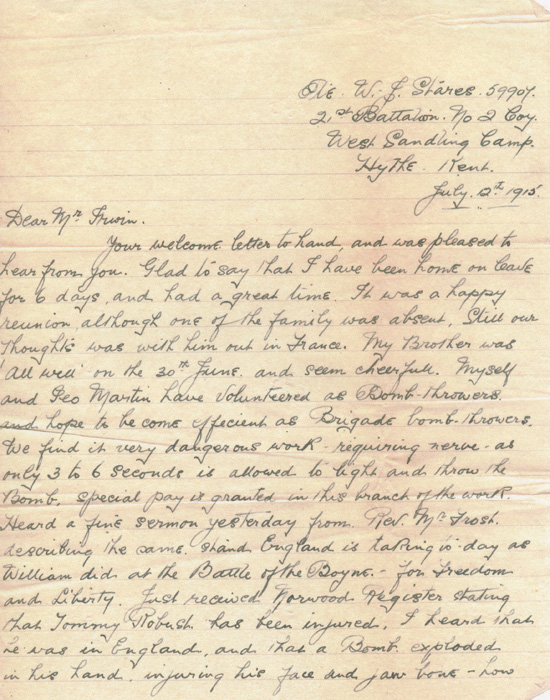 Pte. W. J. Stares. 59907.
21st Battalion. No 2 Coy.
West Sandling Camp.
Hythe. Kent.
July. 12th 1915.
Dear Mr Irwin.
Your welcome letter to hand, and was pleased to
hear from you. Glad to say that I have been home on leave
for 6 days, and had a great time. It was a happy
reunion although one of the family was absent, Still our
thoughts was with him out in France. My Brother was
'All well' on the 30th June. and seem cheerfull. Myself
and Geo Martin have Volunteered as Bomb-throwers.
and hope to be come efficient as Brigade bomb-throwers.
We find it very dangerous work - requiring nerve - as
only 3 to 6 seconds is allowed to light and throw the
Bomb. special pay is granted in this branch of the work.
Heard a fine sermon yesterday from Rev. Mr Frost.
describing the same. stand England is taking to-day as
William did at the Battle of the Boyne. - for Freedom
and Liberty. Just received Norwood Register stating
that Tommy Robush has been injured. I heard that
he was in England, and that a Bomb exploded
in his hand. injuring his face and jaw bone - how